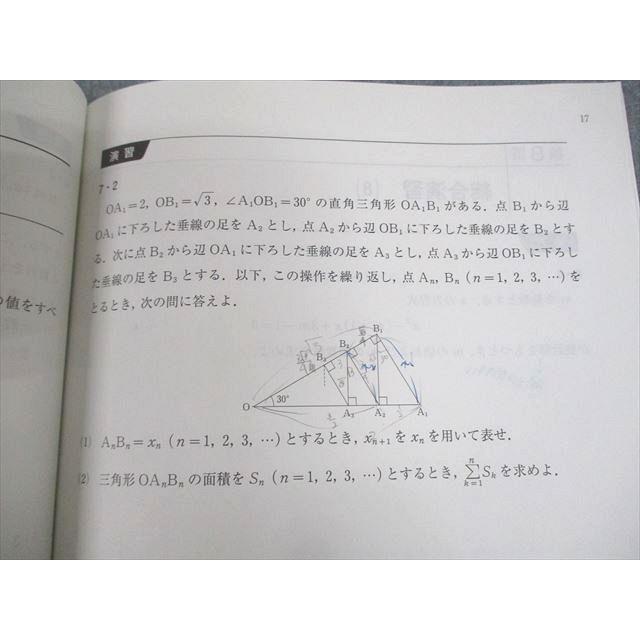 17
演習
7・2
OA₁=2, OB₁=√3, ∠A₁OB₁=30°の直角三角形OA₁B₁がある. 点B₁から辺
OA₁に下ろした垂線の足をA₂とし, 点A₂から辺OB₁に下ろした垂線の足をB₂とす
る. 次に点B₂から辺OA₁に下ろした垂線の足をA₃とし, 点A₃から辺OB₁に下ろし
た垂線の足をB₃とする. 以下, この操作を繰り返し, 点Aₙ, Bₙ (n=1, 2, 3, …)を
とるとき, 次の問に答えよ.
の値をすべ
B₁
B₂
B₃
O
30°
A₃
A₂
A₁
(1) AₙBₙ=xₙ (n=1, 2, 3, …)とするとき, xₙ₊₁をxₙを用いて表せ.
(2) 三角形OAₙBₙの面積をSₙ (n=1, 2, 3, …)とするとき, ∑ₖ₌₁ⁿ Sₖを求めよ.